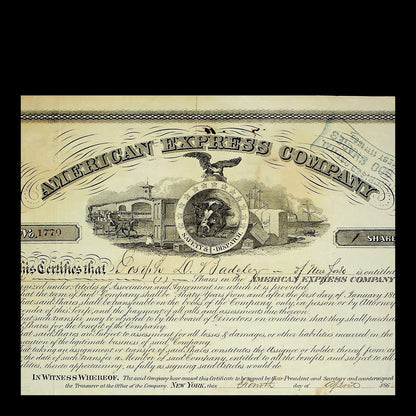 AMERICAN EXPRESS COMPANY
SAFETY & DISPATCH
No. 1770
1 SHARE
This Certifies that Joseph D. of New York is entitled
(1) AMERICAN EXPRESS COMPANY
organized under Articles of Association and Agreement in which it is provided
that the term of said Company shall be Thirty Years from and after the first day of January 18
that said Shares shall be transferable on the books of the Company only in person or by Attorney
surrender of this Scrip, and the payment of all calls and assessments due thereon
that such transfer may be objected to by the board of Directors on condition that they shall purchase
Shares for the benefit of the Company
that said Shares are Subject to assessment for all losses & damages, or other liabilities incurred in the
of the legitimate business of said Company.
that taking an assignment or transfer of said Shares constitutes the Assignee or holder thereof from
the date of such transfer, a Member of said Company, entitled to all the benefits and subject to all
liabilities, thereto appertaining, as fully as signing said Articles would do
IN WITNESS WHEREOF. The said Company have caused this Certificate to be signed by their President and Secretary and countersigned
the Treasurer at the Office of the Company NEW YORK, this day of 186